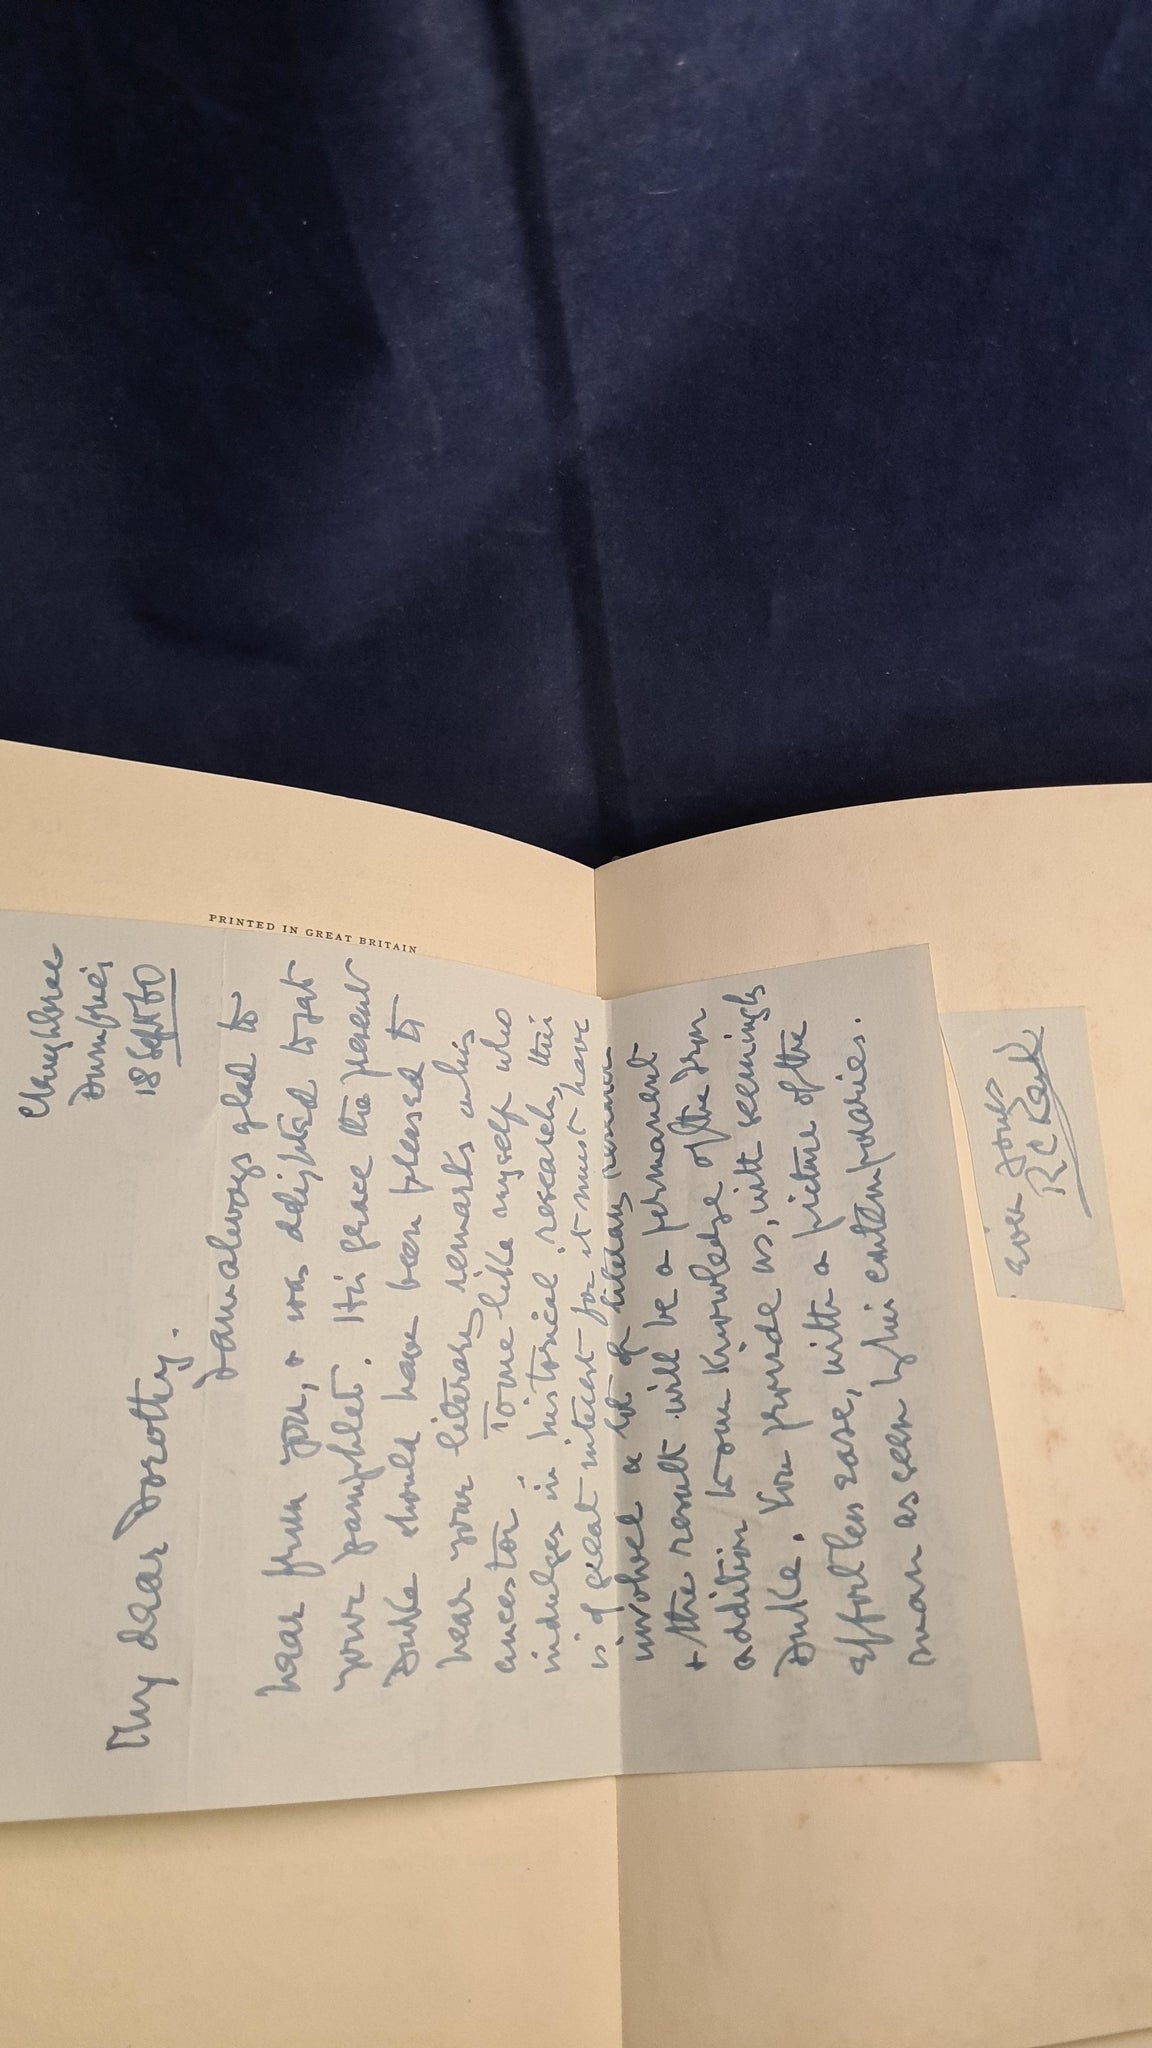 Dumfries
18 Sept 60
My dear Dorothy.
I am always glad to
hear from you, + was delighted to get
your pamphlet. His grace the present
Duke should have been pleased to
hear your literary remarks on his
ancestor. To me like myself who
indulges in historical research, this
is of great interest for it must have
involved a lot of literary
+ the result will be a permanent
addition to our knowledge of the Iron
Duke. You provide us, with seemingly
effortless ease, with a picture of the
man as seen by his contemporaries.
PRINTED IN GREAT BRITAIN
Ever yours
R C